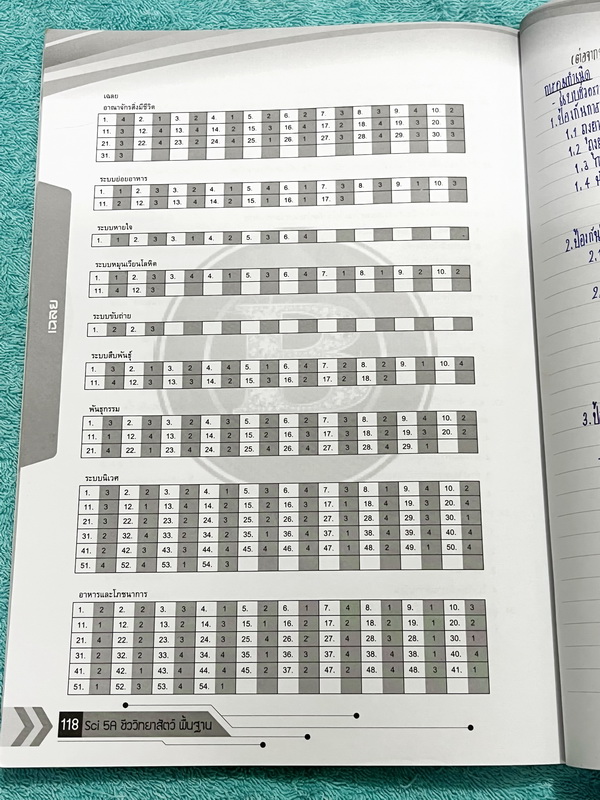 เฉลย
อาณาจักรสิ่งมีชีวิต
1. 4 2. 1 3. 2 4. 1 5. 2 6. 2 7. 3 8. 3 9. 4 10. 2
11. 3 12. 4 13. 4 14. 2 15. 3 16. 4 17. 2 18. 4 19. 3 20. 3
21. 3 22. 4 23. 2 24. 4 25. 1 26. 1 27. 3 28. 4 29. 3 30. 3
31. 3
ระบบย่อยอาหาร
1. 1 2. 3 3. 2 4. 1 5. 4 6. 1 7. 2 8. 3 9. 1 10. 3
11. 2 12. 3 13. 4 14. 2 15. 1 16. 1 17. 3
ระบบหายใจ
1. 1 2. 3 3. 1 4. 2 5. 3 6. 4
ระบบหมุนเวียนโลหิต
1. 1 2. 3 3. 4 4. 1 5. 2 6. 4 7. 1 8. 1 9. 2 10. 2
11. 4 12. 3
ระบบขับถ่าย
1. 2 2. 3
ระบบสืบพันธุ์
1. 3 2. 1 3. 2 4. 4 5. 1 6. 4 7. 2 8. 2 9. 1 10. 4
11. 4 12. 3 13. 3 14. 2 15. 3 16. 2 17. 2 18. 2
พันธุกรรม
1. 3 2. 3 3. 2 4. 3 5. 2 6. 2 7. 3 8. 2 9. 4 10. 2
11. 1 12. 4 13. 2 14. 2 15. 2 16. 3 17. 3 18. 2 19. 3 20. 2
21. 4 22. 1 23. 2 24. 4 25. 4 26. 2 27. 4 28. 4 29. 1
ระบบนิเวศ
1. 3 2. 2 3. 2 4. 1 5. 3 6. 4 7. 3 8. 1 9. 4 10. 2
11. 3 12. 1 13. 4 14. 2 15. 2 16. 3 17. 1 18. 4 19. 3 20. 4
21. 3 22. 2 23. 2 24. 3 25. 2 26. 2 27. 3 28. 4 29. 3 30. 1
31. 2 32. 4 33. 2 34. 2 35. 1 36. 4 37. 1 38. 4 39. 4 40. 4
41. 2 42. 3 43. 3 44. 4 45. 4 46. 4 47. 1 48. 2 49. 1 50. 4
51. 4 52. 2 53. 1 54. 3
อาหารและโภชนาการ
1. 2 2. 2 3. 3 4. 1 5. 2 6. 1 7. 4 8. 1 9. 1 10. 3
11. 1 12. 2 13. 2 14. 3 15. 1 16. 2 17. 2 18. 2 19. 1 20. 2
21. 4 22. 2 23. 2 24. 3 25. 4 26. 2 27. 4 28. 3 28. 1 30. 1
31. 2 32. 2 33. 4 34. 4 35. 1 36. 3 37. 4 38. 4 38. 1 40. 4
41. 2 42. 1 43. 4 44. 4 45. 2 37. 2 47. 2 48. 4 48. 3 41. 1
51. 1 52. 3 53. 4 54. 1
เฉลย
118 Sci 5A ชีววิทยาสัตว์ พื้นฐาน
1.1
1.2
1.3
1.4
2.
2.
3.